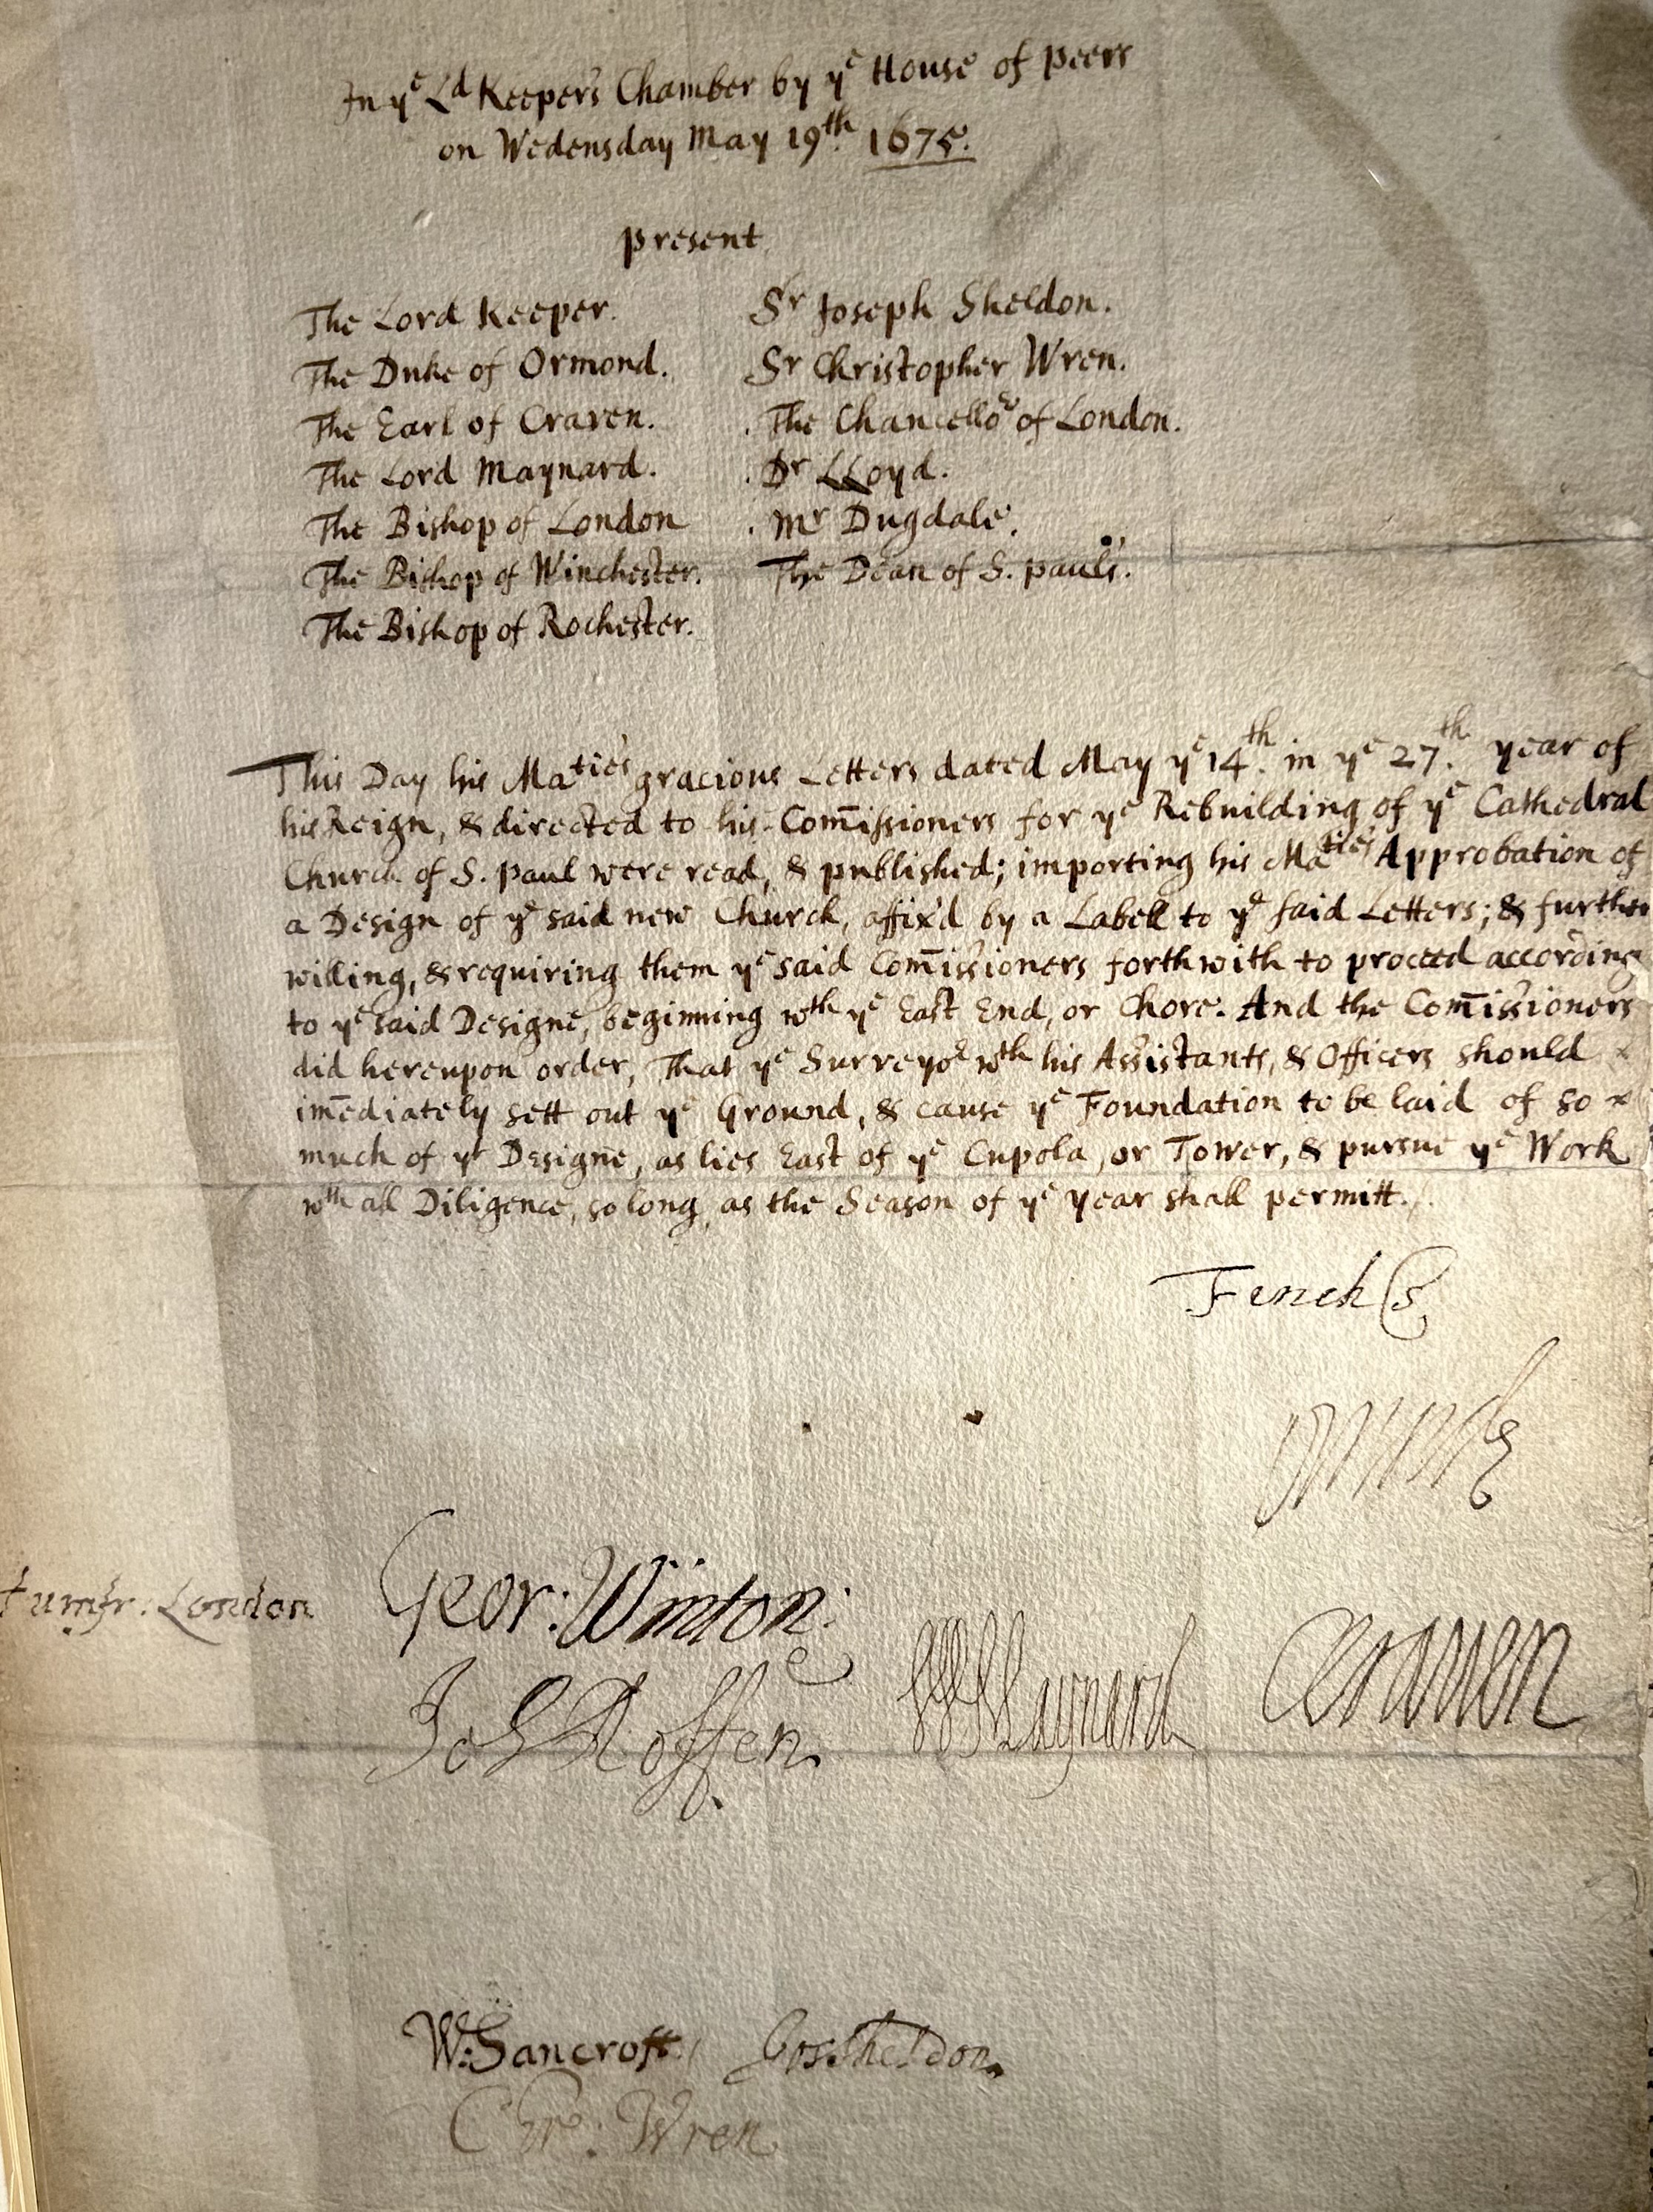 In yᵉ Lᵈ Keepers Chamber by yᵉ House of Peers
on Wedensday May 19ᵗʰ. 1675.
Present
The Lord Keeper.
The Duke of Ormond.
The Earl of Craven.
The Lord Maynard.
The Bishop of London
The Bishop of Winchester.
The Bishop of Rochester.
Sʳ Joseph Sheldon.
Sʳ Christopher Wren.
The Chancelloʳ of London.
Dʳ LLoyd.
Mʳ Dugdale.
The Dean of S. Paul's.
This Day his Maᵗⁱᵉˢ gracious Letters dated May yᵉ 14ᵗʰ. in yᵉ 27ᵗʰ. year of
his Reign, & directed to his Com̄issioners for yᵉ Rebuilding of yᵉ Cathedral
Church of S. Paul were read, & published; importing his Maᵗⁱᵉˢ Approbation of
a Design of yᵉ said new Church, affix'd by a Labell to yᵉ said Letters; & further
willing, & requiring them yᵉ said Com̄issioners forthwith to proceed according
to yᵉ said Designe, beginning wᵗʰ yᵉ East End, or Chore. And the Com̄issioners
did hereupon order, That yᵉ Surveyoʳ wᵗʰ his Assistants, & Officers should
im̄ediately sett out yᵉ Ground, & cause yᵉ Foundation to be laid of so
much of yᵗ Designe, as lies East of yᵉ Cupola, or Tower, & pursue yᵉ Work
wᵗʰ all Diligence, so long, as the Season of yᵉ year shall permitt.
Finch C S
Ormonde
Geor: Winton:
Humfr: London
Craven
W Maynard
Jo Roffen
W: Sancroft
Jos Sheldon
Chr: Wren